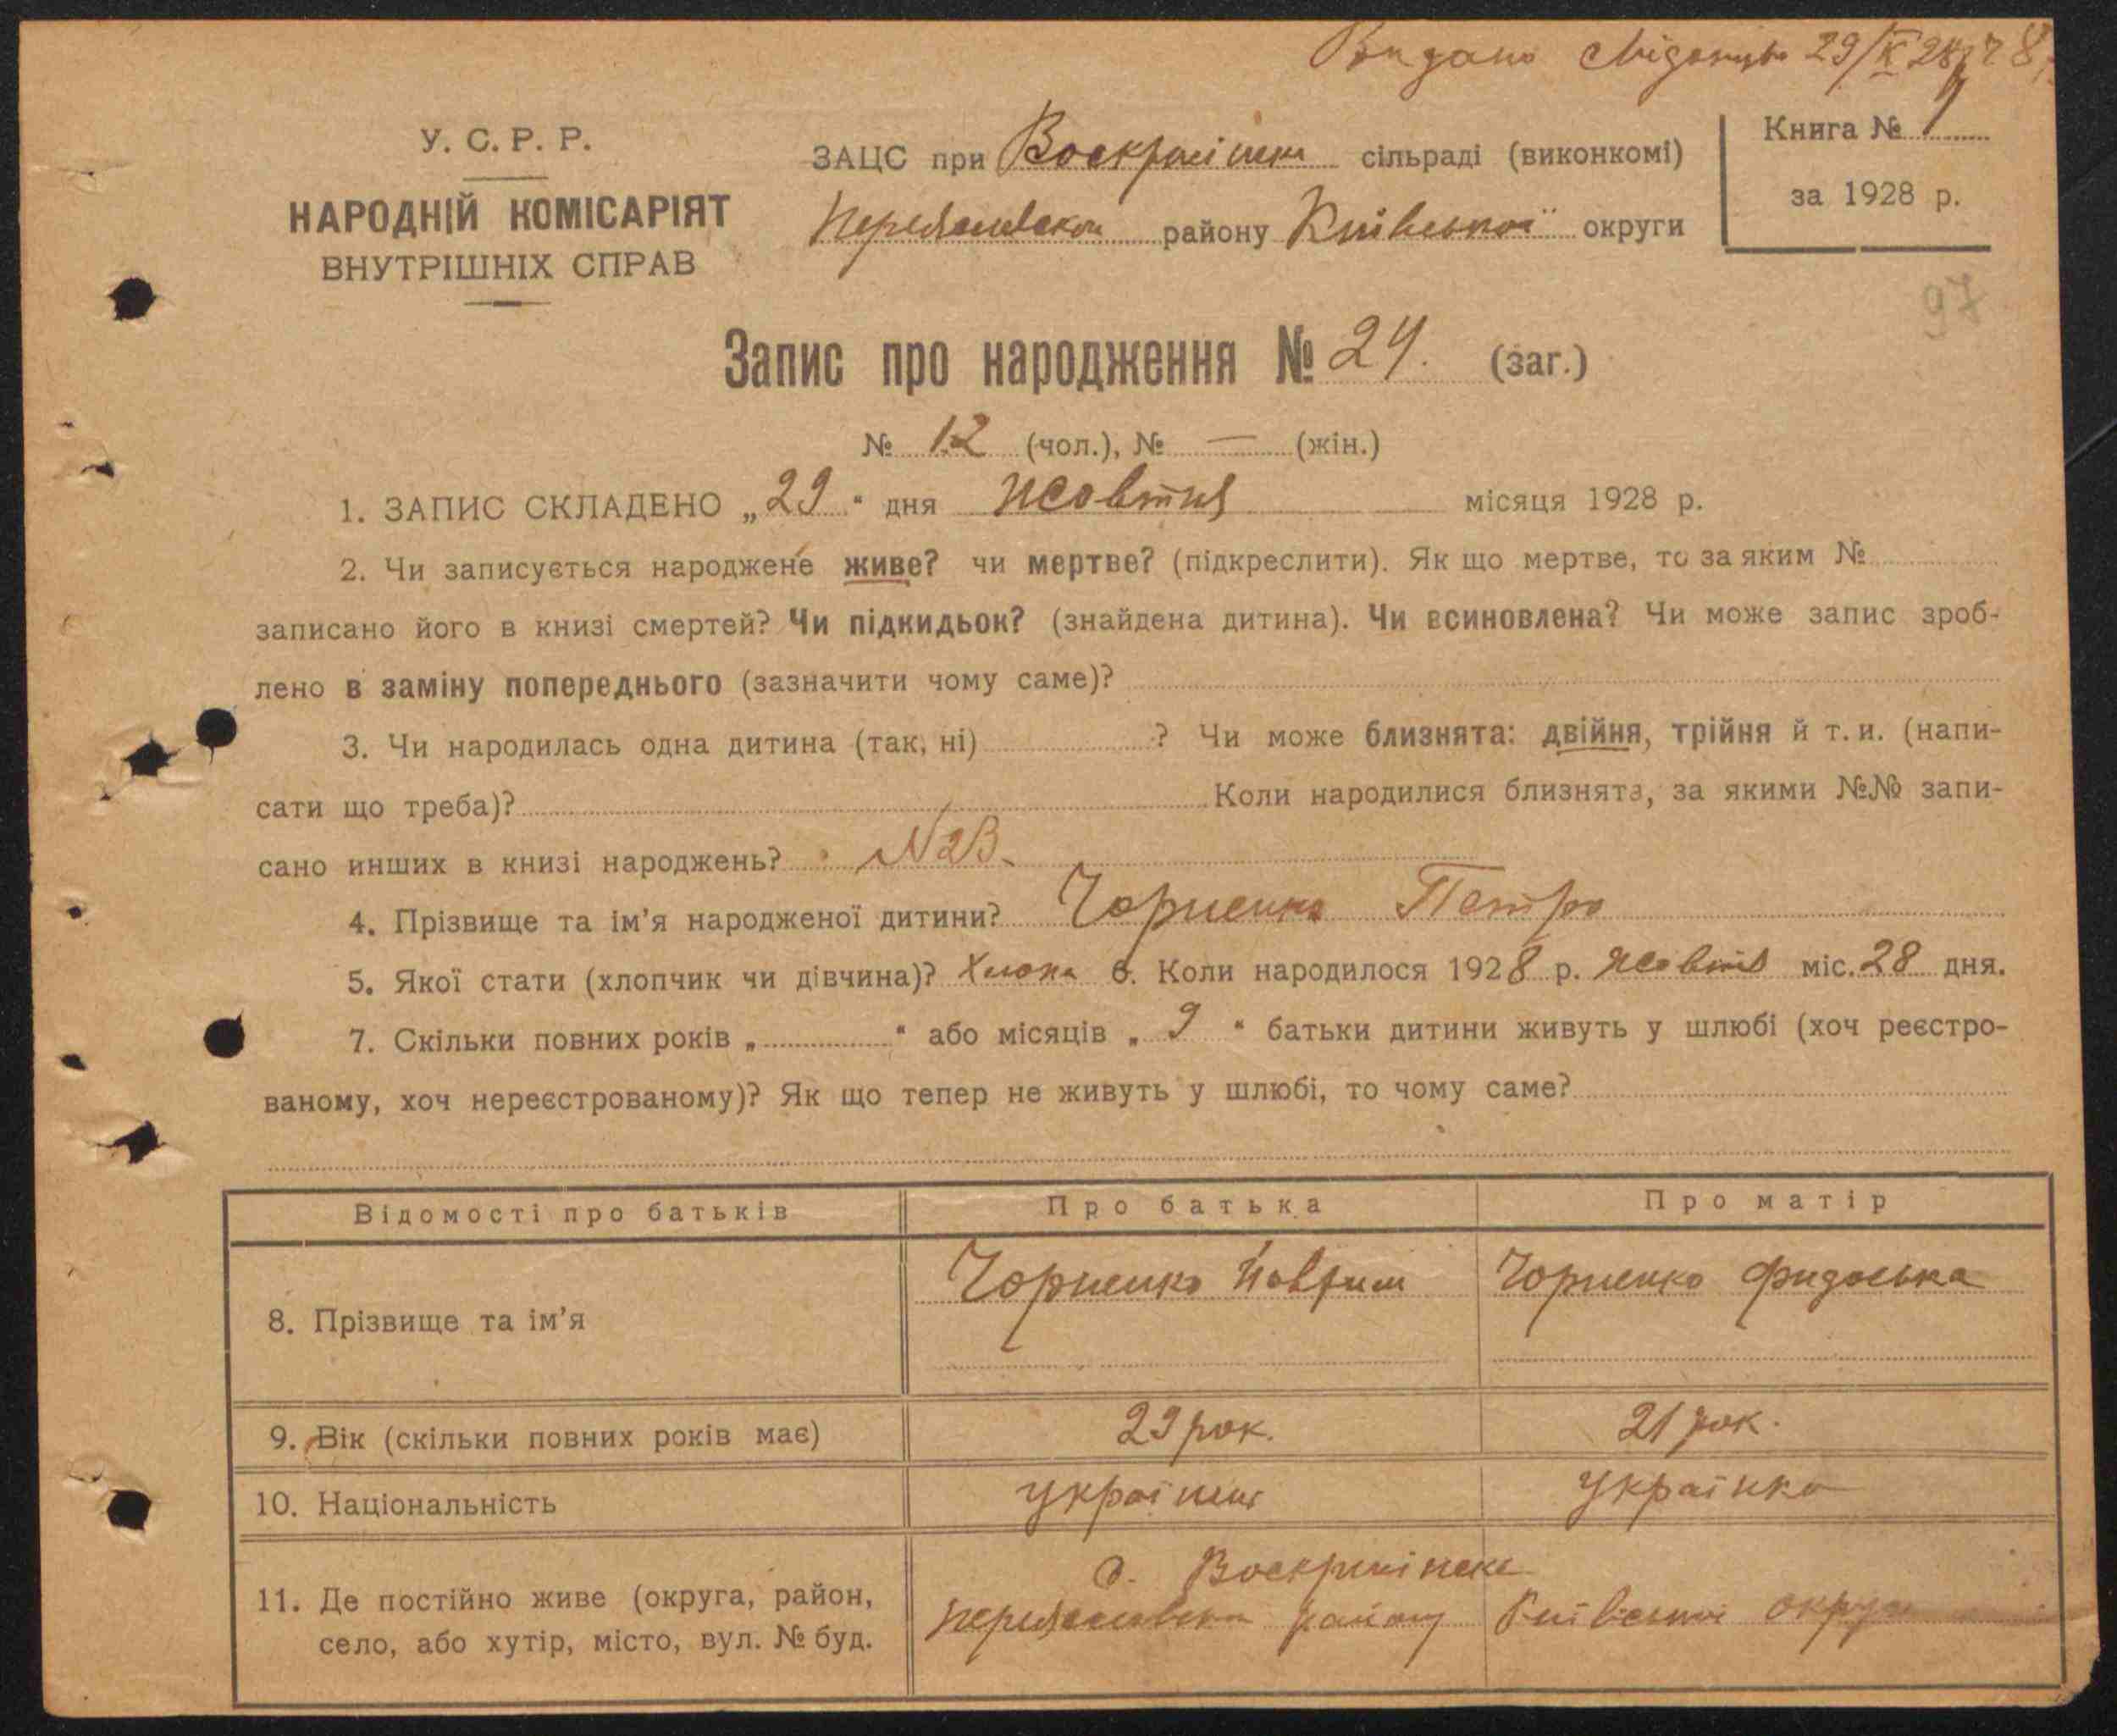 Видано 29/X 28
У. С. Р. Р.
НАРОДНІЙ КОМІСАРІЯТ
ВНУТРІШНІХ СПРАВ
ЗАЦС при сільраді (виконкомі)
району Київської округи
Книга №
за 1928 р.
97
Запис про народження № 24. (заг.)
№ 12 (чол.), № — (жін.)
1. ЗАПИС СКЛАДЕНО „29“ дня жовтня місяця 1928 р.
2. Чи записується народжене живе? чи мертве? (підкреслити). Як що мертве, то за яким №
записано його в книзі смертей? Чи підкидьок? (знайдена дитина). Чи всиновлена? Чи може запис зроб-
лено в заміну попереднього (зазначити чому саме)?
3. Чи народилась одна дитина (так, ні) ? Чи може близнята: двійня, трійня й т. и. (напи-
сати що треба)? Коли народилися близнята, за якими №№ запи-
сано инших в книзі народжень? N 23.
4. Прізвище та ім’я народженої дитини? Чорненко Петро
5. Якої стати (хлопчик чи дівчина)? 6. Коли народилося 1928 р. жовтня міс. 28 дня.
7. Скільки повних років „ “ або місяців „ 9 “ батьки дитини живуть у шлюбі (хоч реєстро-
ваному, хоч нереєстрованому)? Як що тепер не живуть у шлюбі, то чому саме?
Відомості про батьків Про батька Про матір
8. Прізвище та ім’я Чорненко Чорненко Фидоська
9. Вік (скільки повних років має) 23 рок. 21 рок.
10. Національність українець українка
11. Де постійно живе (округа, район,
село, або хутір, місто, вул. № буд.
району Київської округи